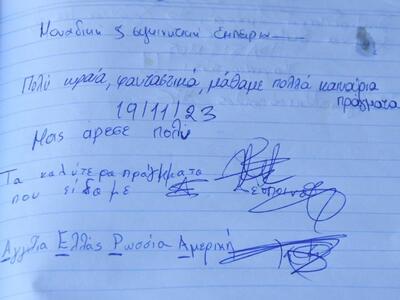 Μοναδική συγκινητική εμπειρία
Πολύ ωραία, φανταστικά, μάθαμε πολλά καινούρια
πράγματα
19/11/23
Μας άρεσε πολύ
Τα καλύτερα πράγματα
που είδαμε
Αγγλία Ελλάς Ρωσσία Αμερική